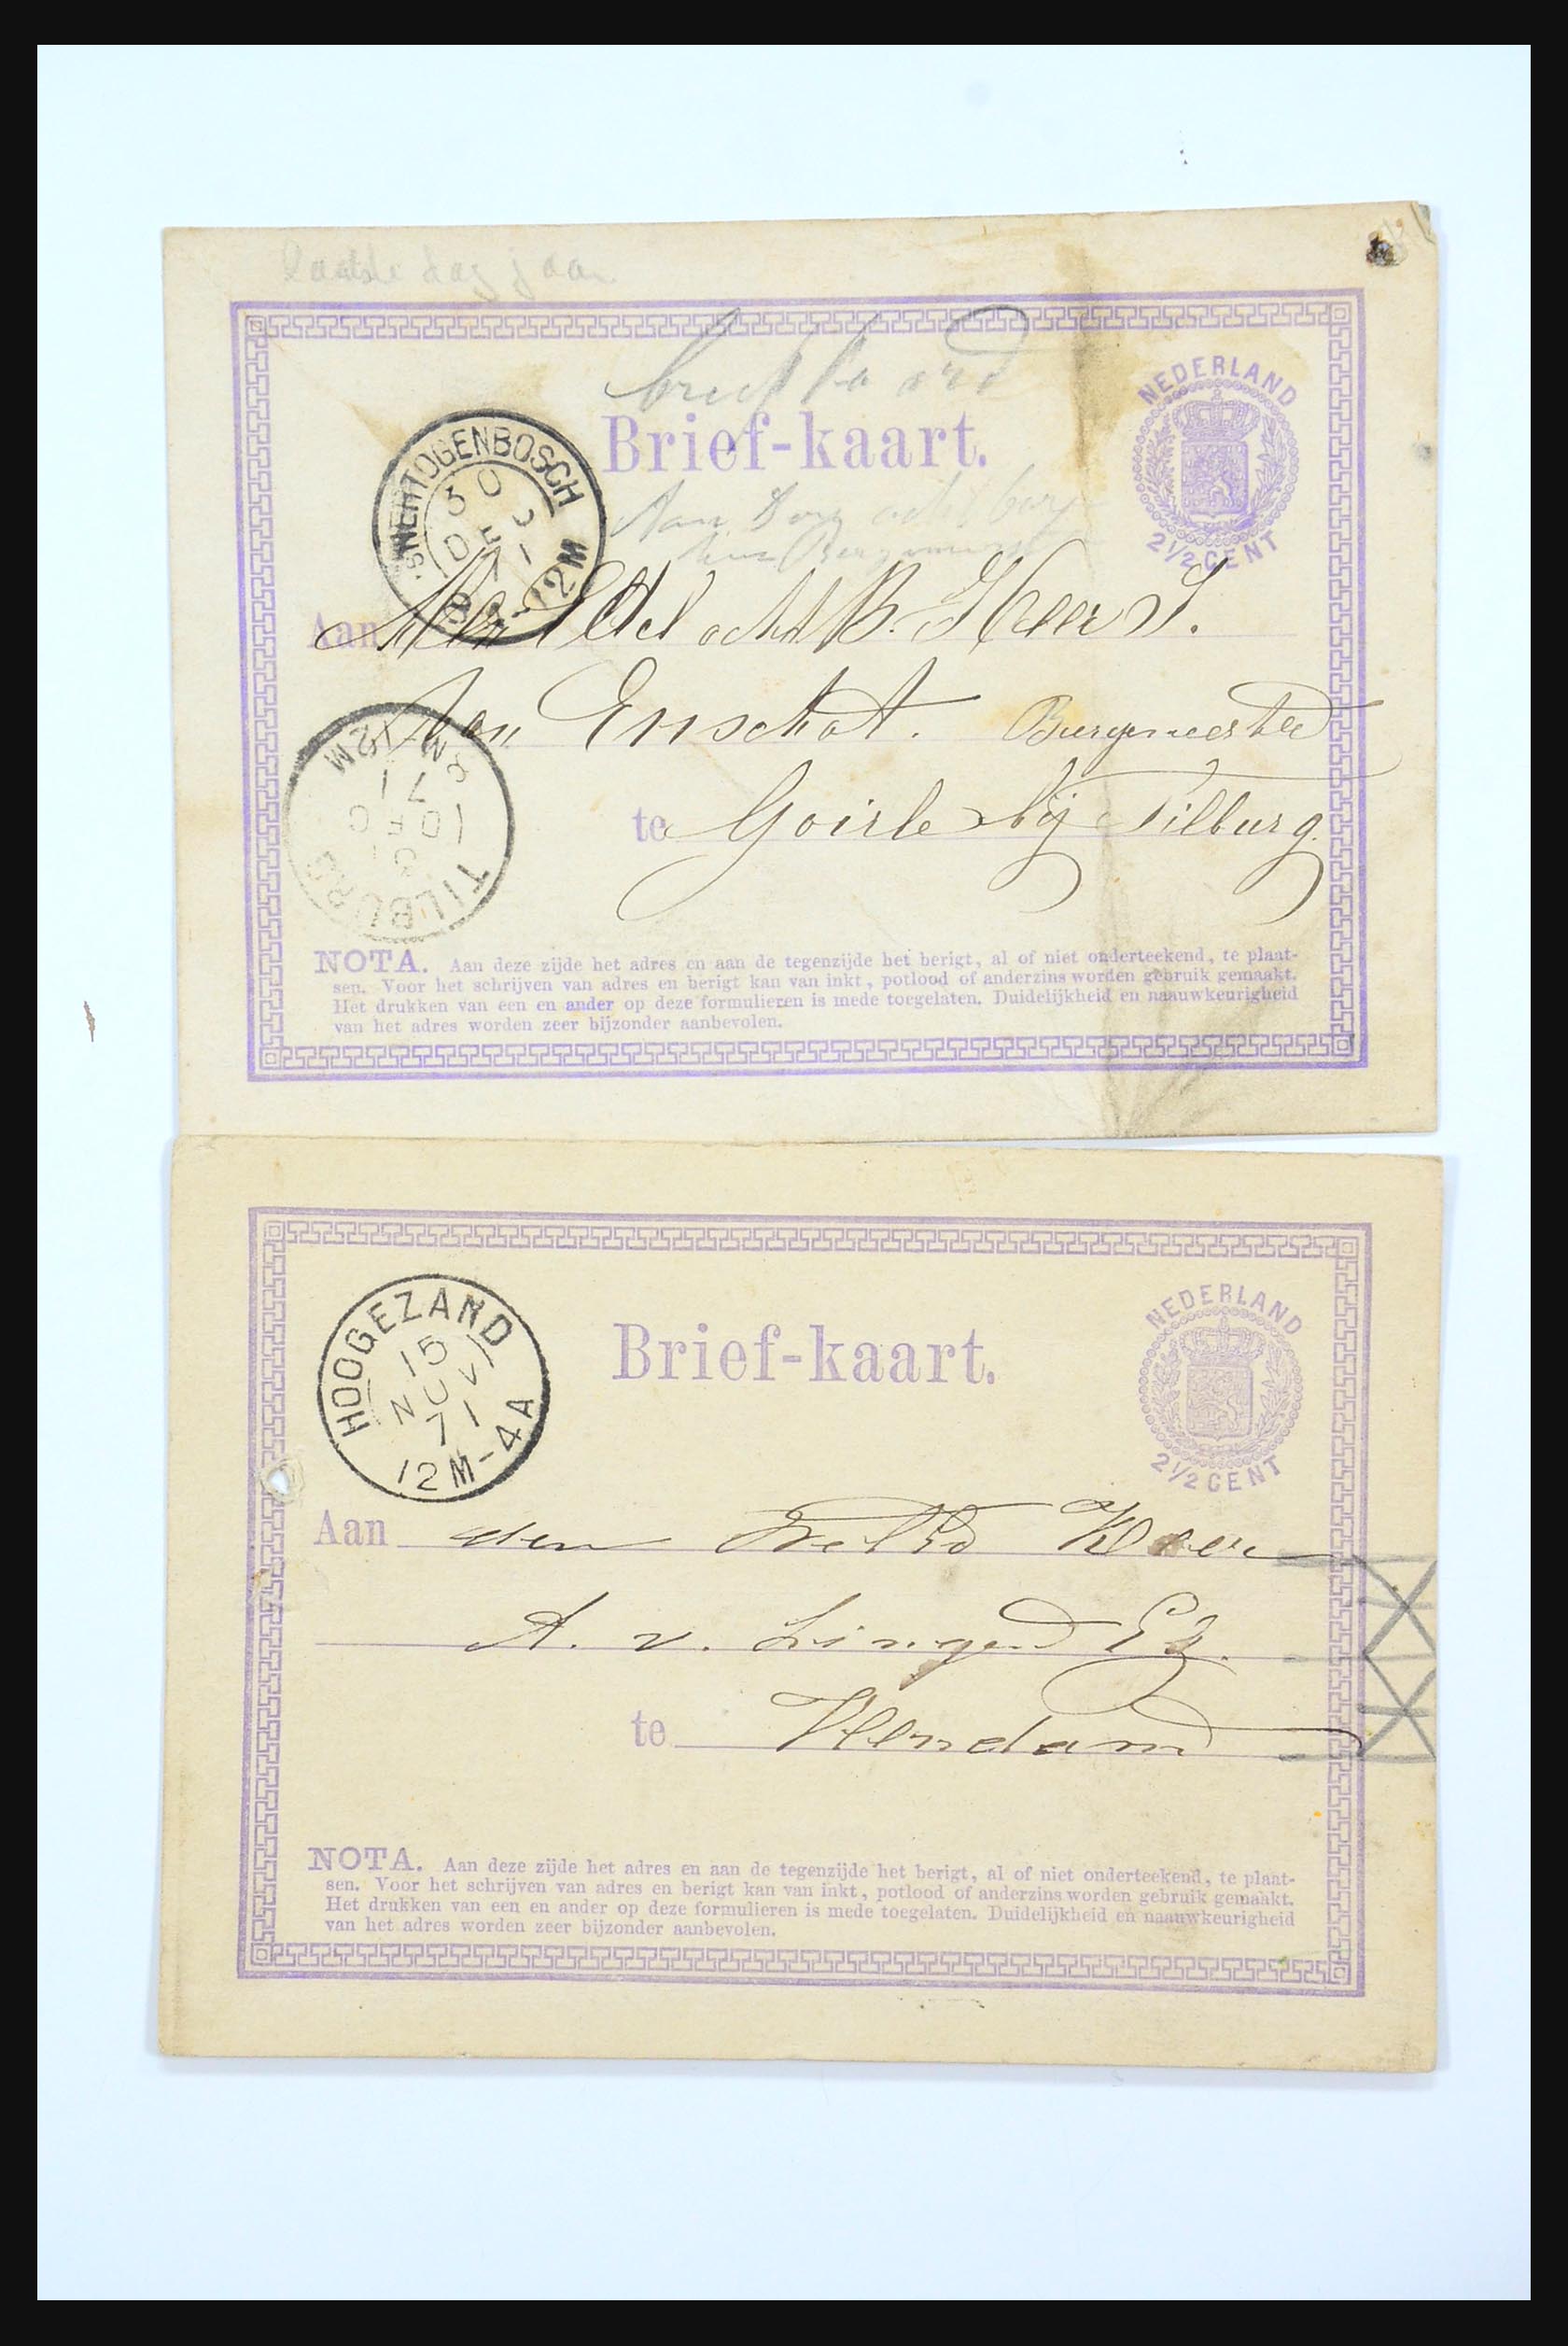 laatste dag jaar
NEDERLAND
2½ CENT
Brief-kaart.
'S HERTOGENBOSCH
30
DEC
71
8M-12M
Aan
B. Heer J.
van Enschot. Burgemeester
te Goirle bij Tilburg.
TILBURG
31
DEC
71
8M-12M
NOTA. Aan deze zijde het adres en aan de tegenzijde het berigt, al of niet onderteekend, te plaat-
sen. Voor het schrijven van adres en berigt kan van inkt, potlood of anderzins worden gebruik gemaakt.
Het drukken van een en ander op deze formulieren is mede toegelaten. Duidelijkheid en naauwkeurigheid
van het adres worden zeer bijzonder aanbevolen.
NEDERLAND
2½ CENT
Brief-kaart.
HOOGEZAND
15
NOV
71
12M-4A
Aan den Heer
A. v. Lingen Ez.
te Veendam
NOTA. Aan deze zijde het adres en aan de tegenzijde het berigt, al of niet onderteekend, te plaat-
sen. Voor het schrijven van adres en berigt kan van inkt, potlood of anderzins worden gebruik gemaakt.
Het drukken van een en ander op deze formulieren is mede toegelaten. Duidelijkheid en naauwkeurigheid
van het adres worden zeer bijzonder aanbevolen.